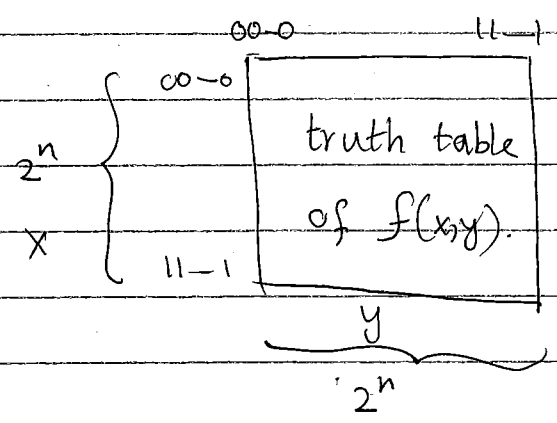 00-0 11-1
00-0
truth table
2^n
of f(x,y).
x
11-1
y
2^n